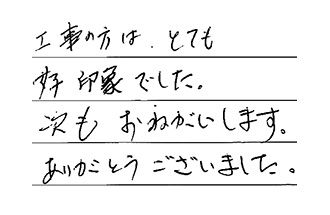 工事の方は、とても
好印象でした。
次も おねがいします。
ありがとうございました。